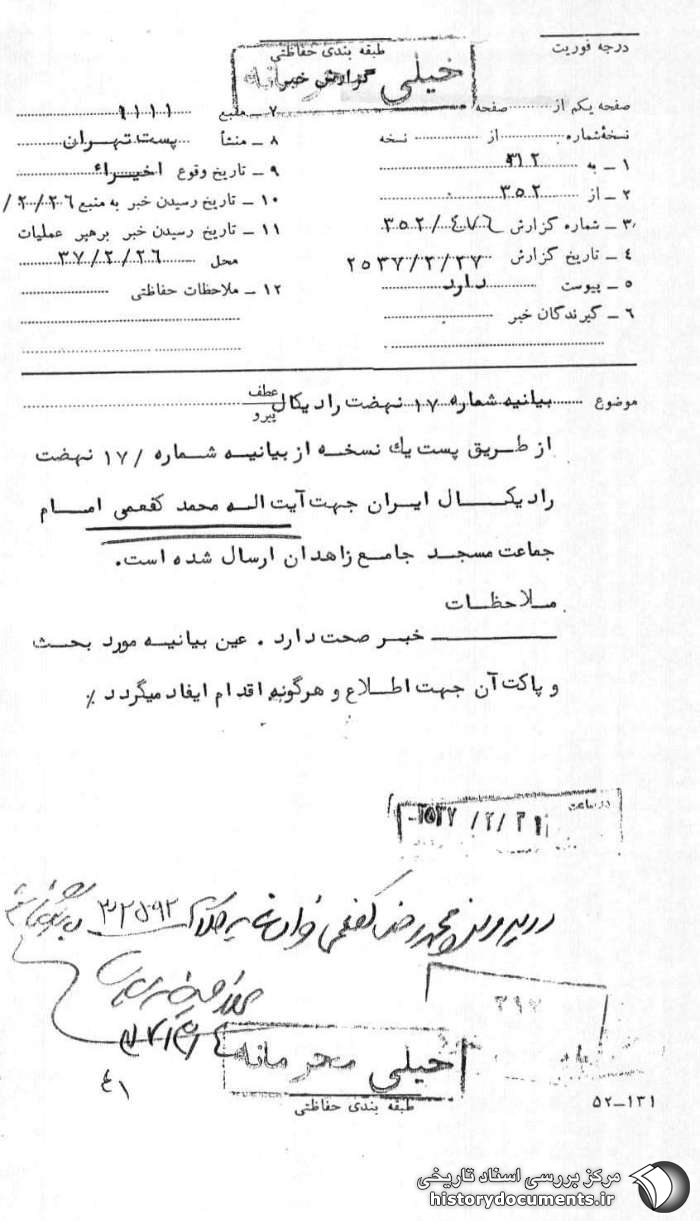 درجه فوریت
طبقه بندی حفاظتی
خیلی محرمانه
گزارش خبر
صفحه یکم از صفحه
نسخه شماره از نسخه
۱ - به ۳۱۲
۲ - از ۳۵۲
۳ - شماره گزارش ۳۵۲/۴۷۶
۴ - تاریخ گزارش ۲۵۳۷/۲/۲۷
۵ - پیوست دارد
۶ - گیرندگان خبر
۷ - منبع ۹۱۱۱
۸ - منشأ پست تهران
۹ - تاریخ وقوع اخیراً
۱۰ - تاریخ رسیدن خبر به منبع ۲/۲۶/
۱۱ - تاریخ رسیدن خبر برهبر عملیات
محل ۳۷/۲/۲۶
۱۲ - ملاحظات حفاظتی
موضوع بیانیه شماره ۱۷ نهضت رادیکال عطف پیرو
از طریق پست یك نسخه از بیانیه شماره /۱۷ نهضت
رادیکال ایران جهت آیت اله محمد کفعمی امام
جماعت مسجد جامع زاهدان ارسال شده است.
ملاحظات
خبر صحت دارد . عین بیانیه مورد بحث
و پاکت آن جهت اطلاع و هرگونه اقدام ایفاد میگردد ٪
۲۵۳۷/۲/۳۱
کفعمی
۳۱۲
خیلی محرمانه
طبقه بندی حفاظتی
۴۱
۵۲-۱۳۱
مرکز بررسی اسناد تاریخی
historydocuments.ir